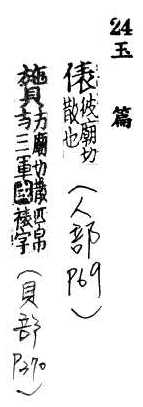 24
玉篇
俵彼廟切散也(人部P69)
方廟切散匹帛与三軍字(貝部P370)